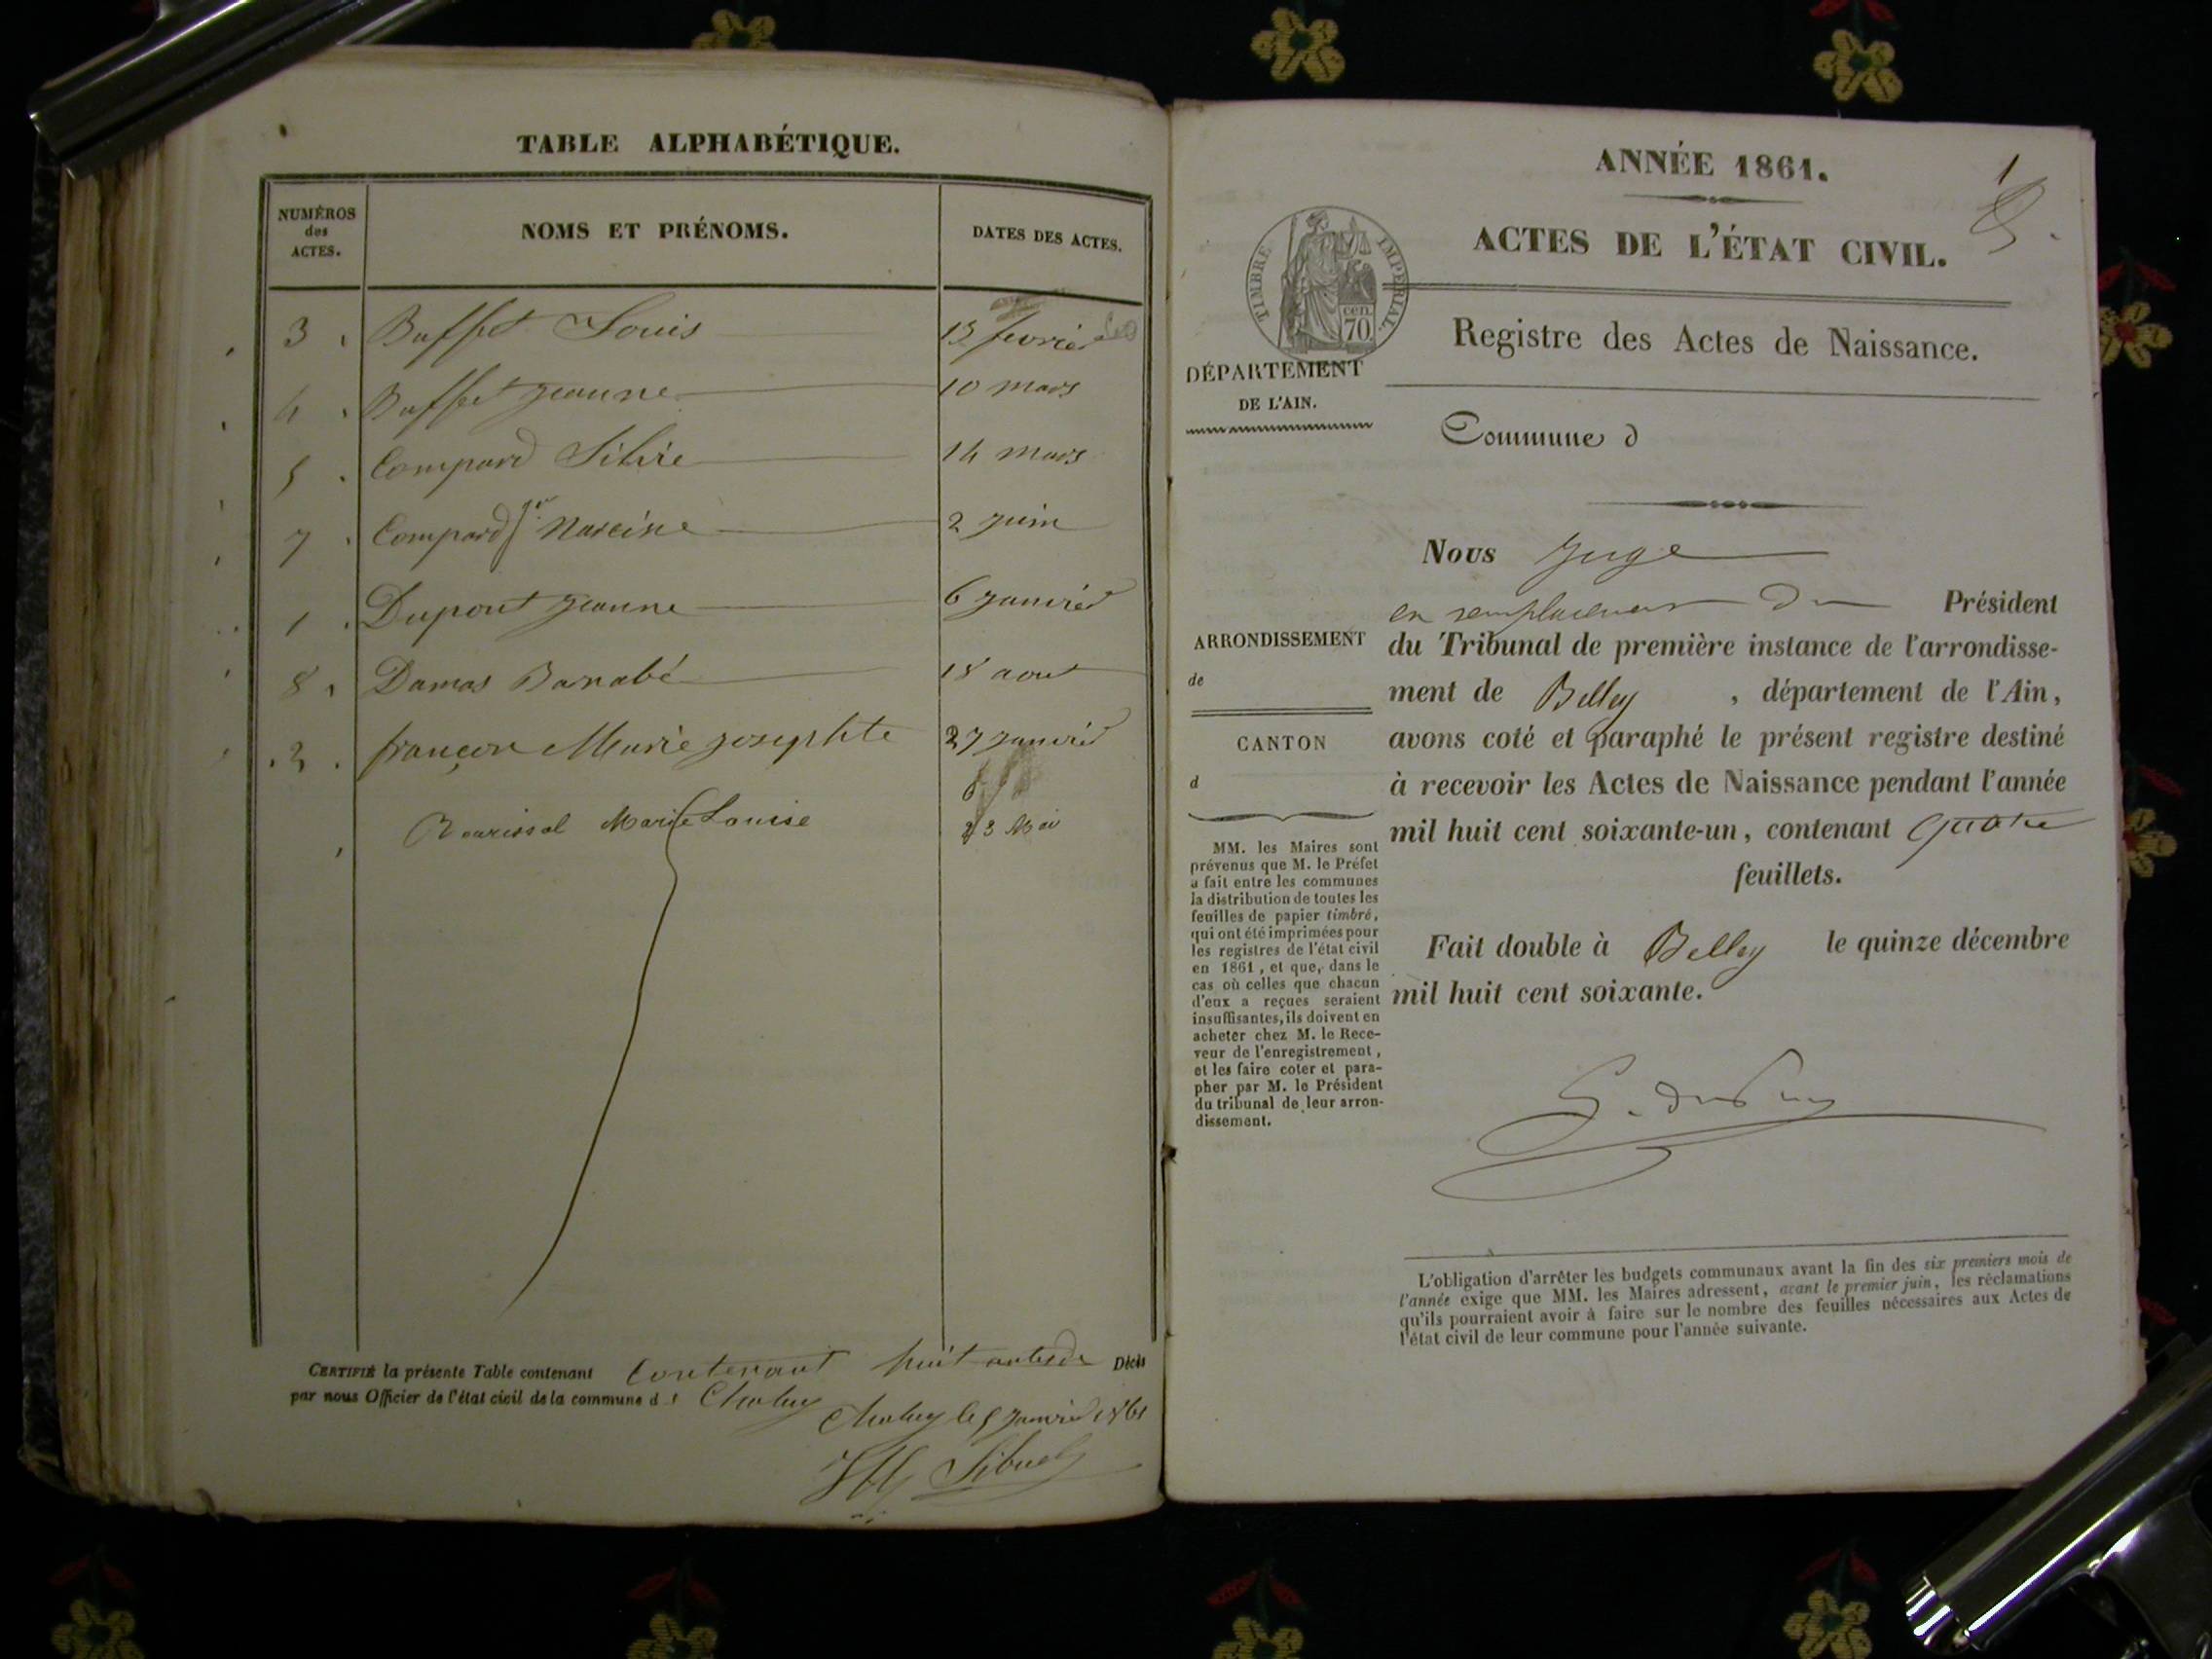 TABLE ALPHABÉTIQUE.
NUMÉROS des ACTES. NOMS ET PRÉNOMS. DATES DES ACTES.
3 Buffet Louis 13 fevrier
4 Buffet jeanne 10 mars
5 Compard Silvie 14 mars
7 Compard Narcisse 2 juin
1 Dupont jeanne 6 janvier
8 Damas Barnabé 18 aout
2 françon Marie josephte 27 janvier
Marie Louise 23 Mai
CERTIFIÉ la présente Table contenant Contenant huit actes de Décès
par nous Officier de l'état civil de la commune d
le 5 janvier 1861
Sibuet
ANNÉE 1861.
1
ACTES DE L'ÉTAT CIVIL.
TIMBRE IMPÉRIAL.
cen. 70
Registre des Actes de Naissance.
DÉPARTEMENT
DE L'AIN.
Commune d
Nous Juge
en remplacement du Président
ARRONDISSEMENT
de
CANTON
d
du Tribunal de première instance de l'arrondisse-
ment de Belley, département de l'Ain,
avons coté et paraphé le présent registre destiné
à recevoir les Actes de Naissance pendant l'année
mil huit cent soixante-un, contenant quatre
feuillets.
Fait double à Belley le quinze décembre
mil huit cent soixante.
MM. les Maires sont
prévenus que M. le Préfet
a fait entre les communes
la distribution de toutes les
feuilles de papier timbré,
qui ont été imprimées pour
les registres de l'état civil
en 1861, et que, dans le
cas où celles que chacun
d'eux a reçues seraient
insuffisantes, ils doivent en
acheter chez M. le Rece-
veur de l'enregistrement,
et les faire coter et para-
pher par M. le Président
du tribunal de leur arron-
dissement.
L'obligation d'arrêter les budgets communaux avant la fin des six premiers mois de
l'année exige que MM. les Maires adressent, avant le premier juin, les réclamations
qu'ils pourraient avoir à faire sur le nombre des feuilles nécessaires aux Actes de
l'état civil de leur commune pour l'année suivante.